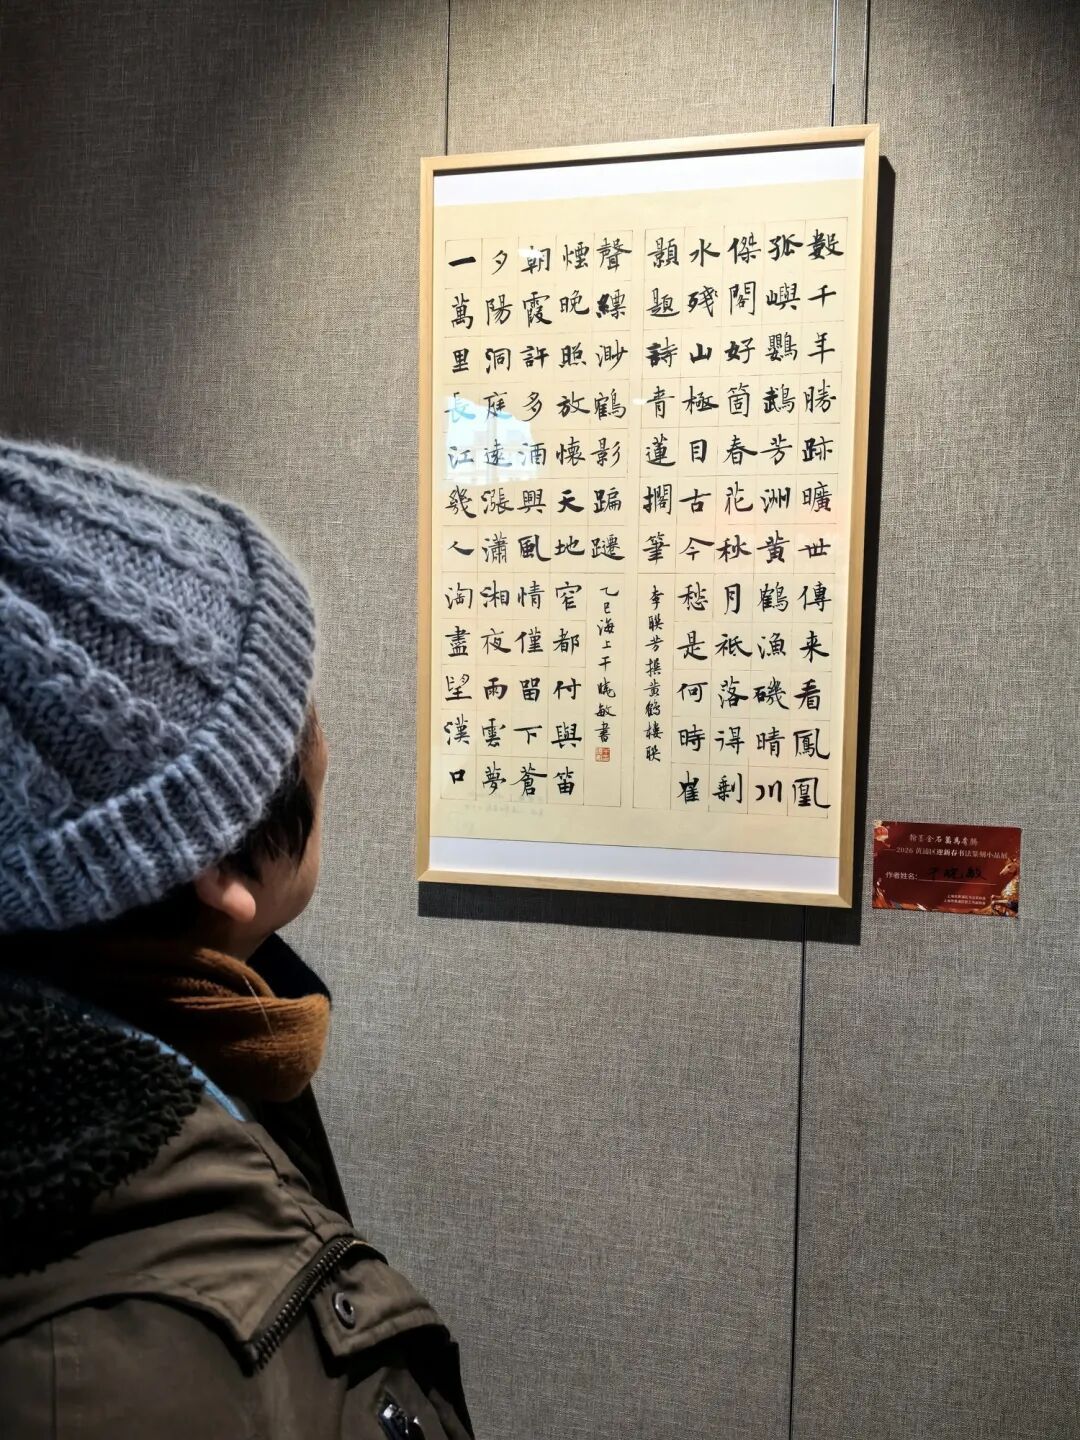 數千年勝跡曠世傳来看鳳凰
孤嶼鸚鵡芳洲黃鶴漁磯晴川
傑閣好箇春花秋月祇落得剩
水殘山極目古今愁是何時崔
顥題詩青蓮擱筆
李聯芳撰黃鶴樓聯
一萬里長江幾人淘盡望漢口
夕陽洞庭遠漲瀟湘夜雨雲夢
朝霞許多酒興風情僅留下蒼
煙晚照放懷天地窄都付與笛
聲縹渺鶴影蹁躚
乙巳海上干曉敏書
2026 黄浦区迎新春书法篆刻小品展
作者姓名：干晓敏